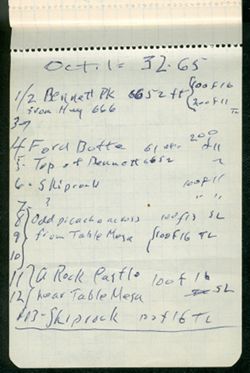 Oct. 1 = 32.65
1/2 Bennett PK 6652 ft {100 f 16
from Hwy 666 {200 f 11
3 - ?
4 Ford Butte 200 f 11
5. Top of Bennett 6652 "
6. - Shiprock 100 f 11
7. ? " "
8 { Odd picacho across 100 f 13 SL
9 { from Table Mesa {100 f 16 TL
10
11 { A Rock Castle 100 f 16
12 { near Table Mesa SL
13 - Shiprock 100 f 16 TL